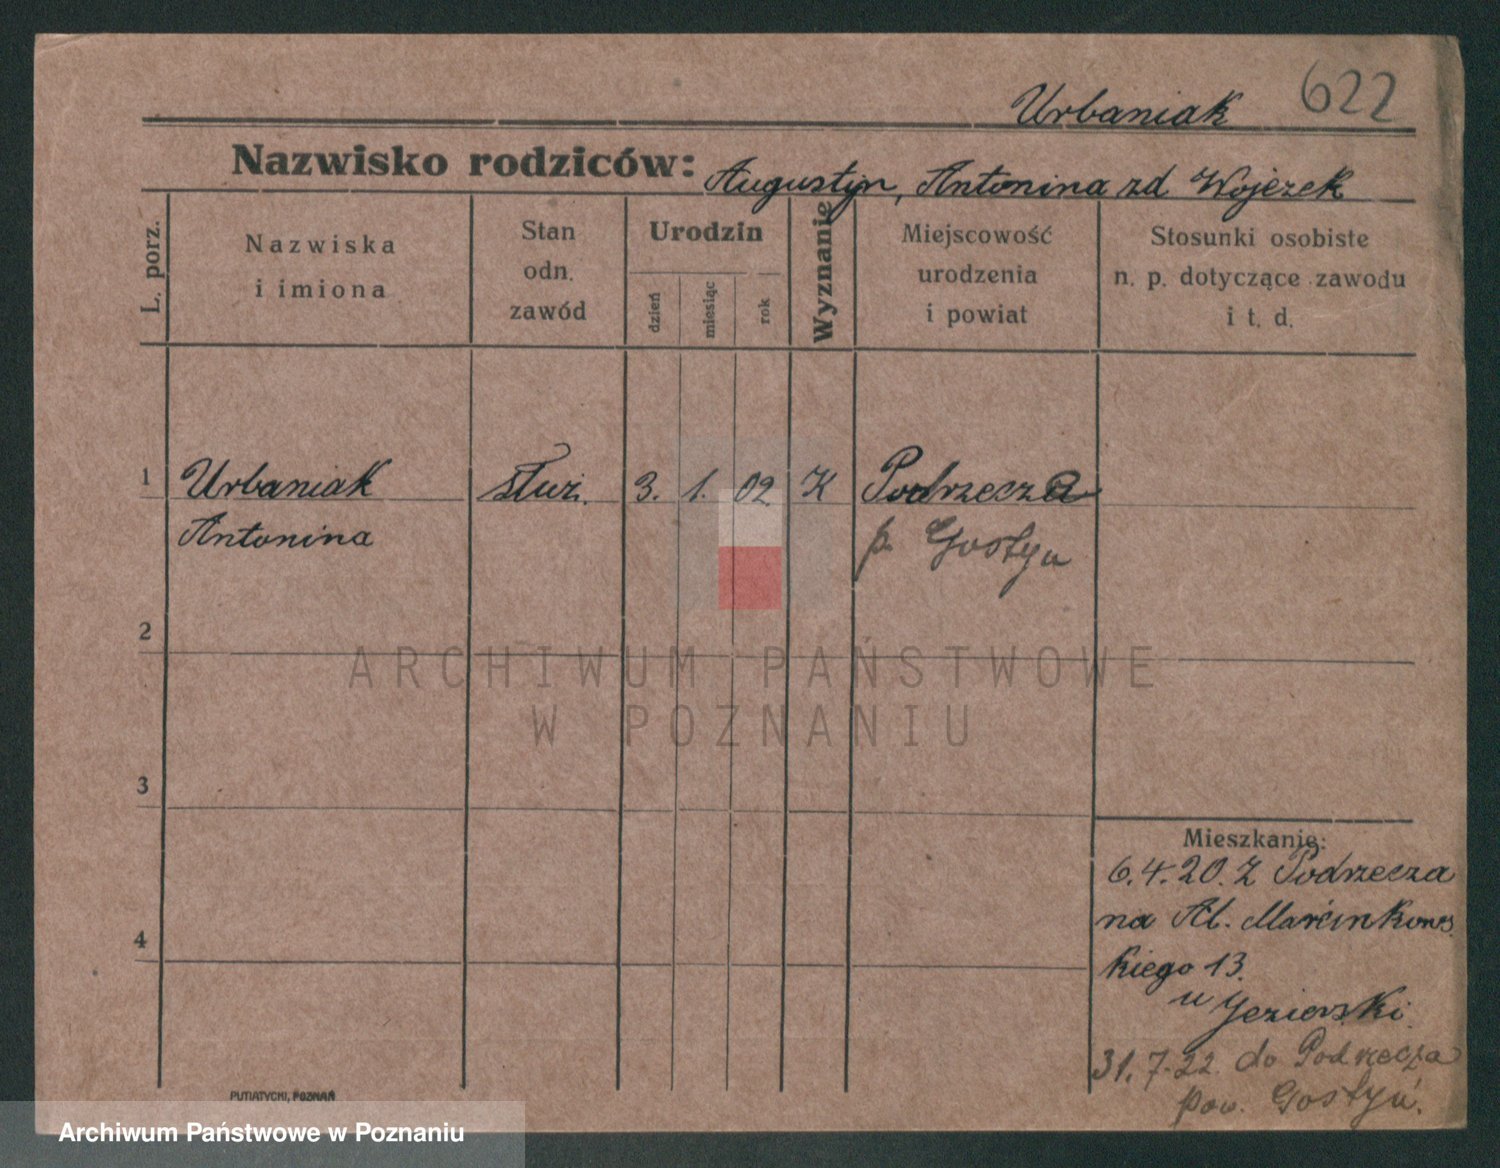 622
Urbaniak
Nazwisko rodziców: Augustyn, Antonina zd Wojczek
L. porz.
Nazwiska
i imiona
Stan
odn.
zawód
Urodzin
dzień
miesiąc
rok
Wyznanie
Miejscowość
urodzenia
i powiat
Stosunki osobiste
n. p. dotyczące zawodu
i t. d.
1 Urbaniak służ. 3. 1. 02. K Podrzecza
Antonina p. Gostyn
2
ARCHIWUM PAŃSTWOWE
W POZNANIU
3
4
Mieszkanie:
6.4.20. Z Podrzecza
na Al. Marcinkows
kiego 13.
u Jezierski.
31.7.22. do Podrzecza
pow. Gostyń.
PUTIATYCKI, POZNAŃ
Archiwum Państwowe w Poznaniu